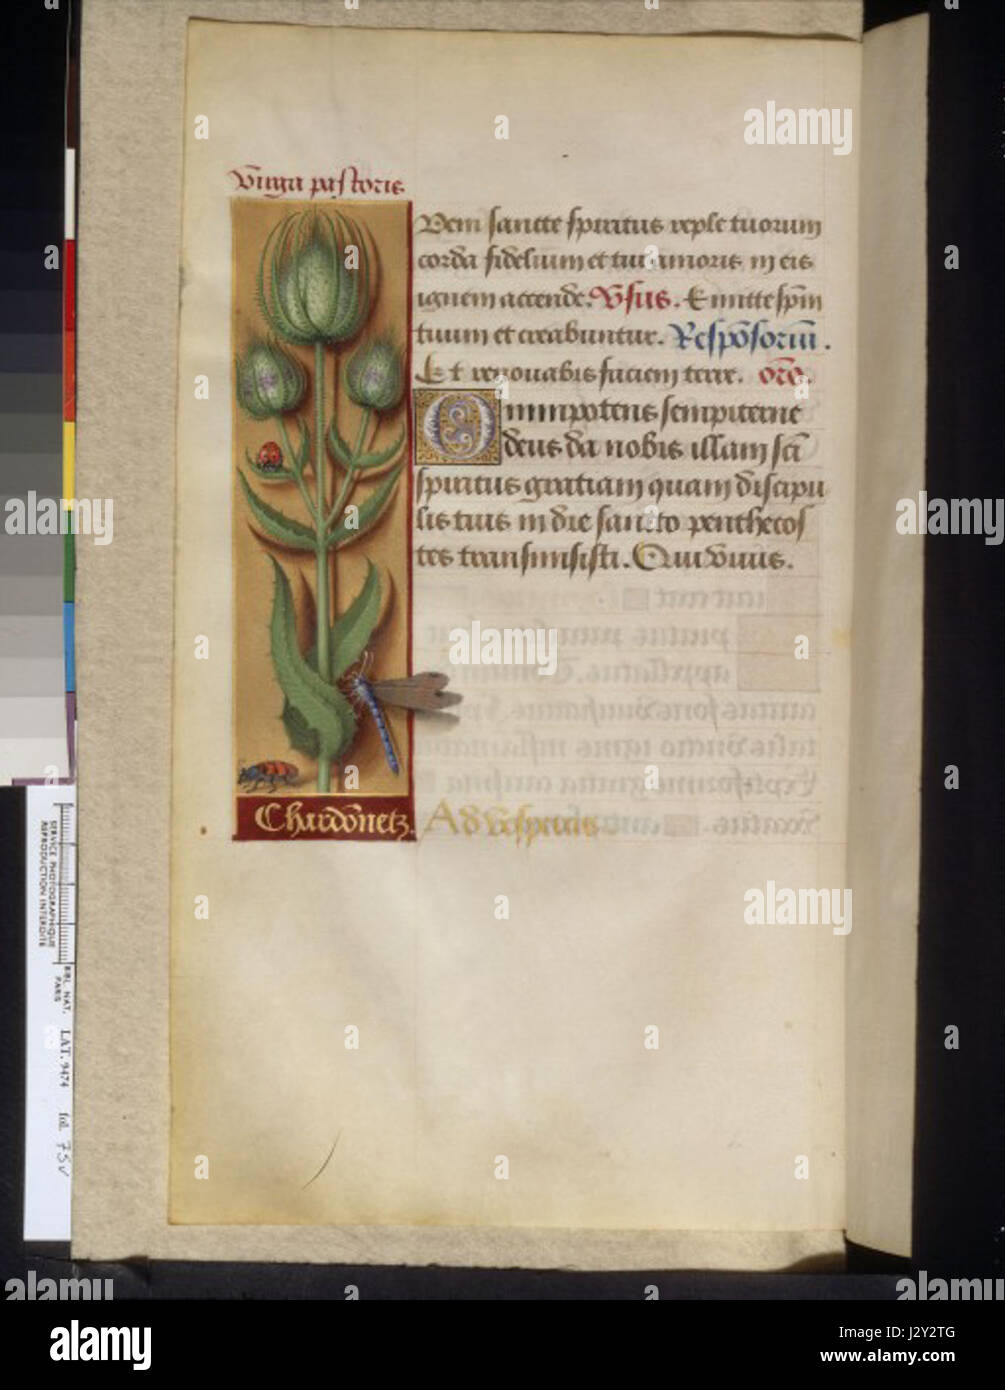 Virga pastoris
Veni sancte spiritus reple tuorum
corda fidelium et tui amoris in eis
ignem accende. Vsus. Emitte spm
tuum et creabuntur. Responsoriu.
Et renouabis faciem terre. oro.
Omnipotens sempiterne
deus da nobis illam sci
spiritus gratiam quam discipu
lis tuis in die sancto penthecos
tes transmisisti. Qui viuis.
Chardonetz.
Ad vesperas
SERVICE PHOTOGRAPHIQUE
REPRODUCTION INTERDITE
BIBL. NAT.
PARIS
LAT. 9474 fol. 75v
alamy stock photo
alamy
Image ID: J2Y2TG
www.alamy.com